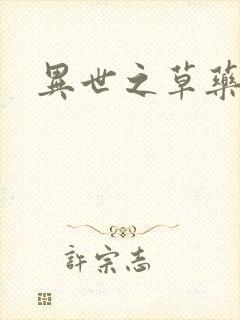 異世之草藥
許宗志